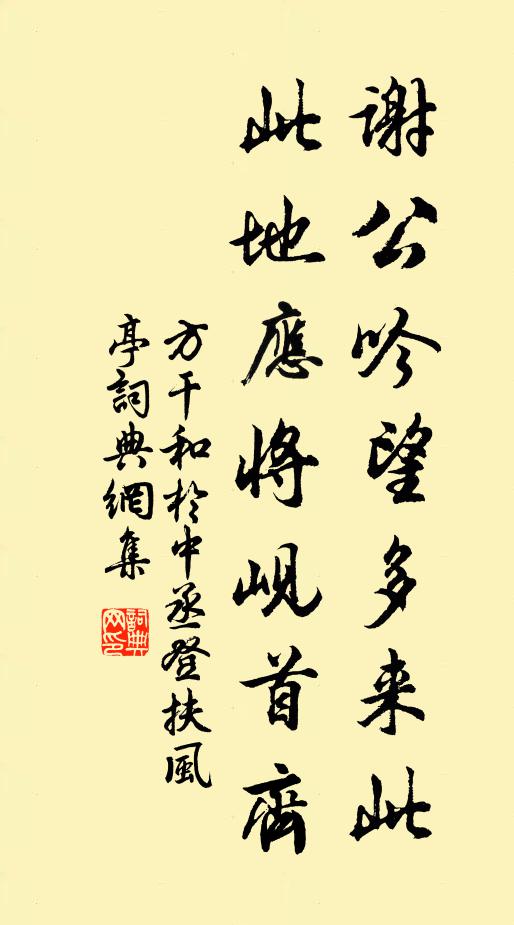 謝公吟望多来此
此地應將峴首齊
方干和於中丞登扶風
亭詞典網集
詞典
网印